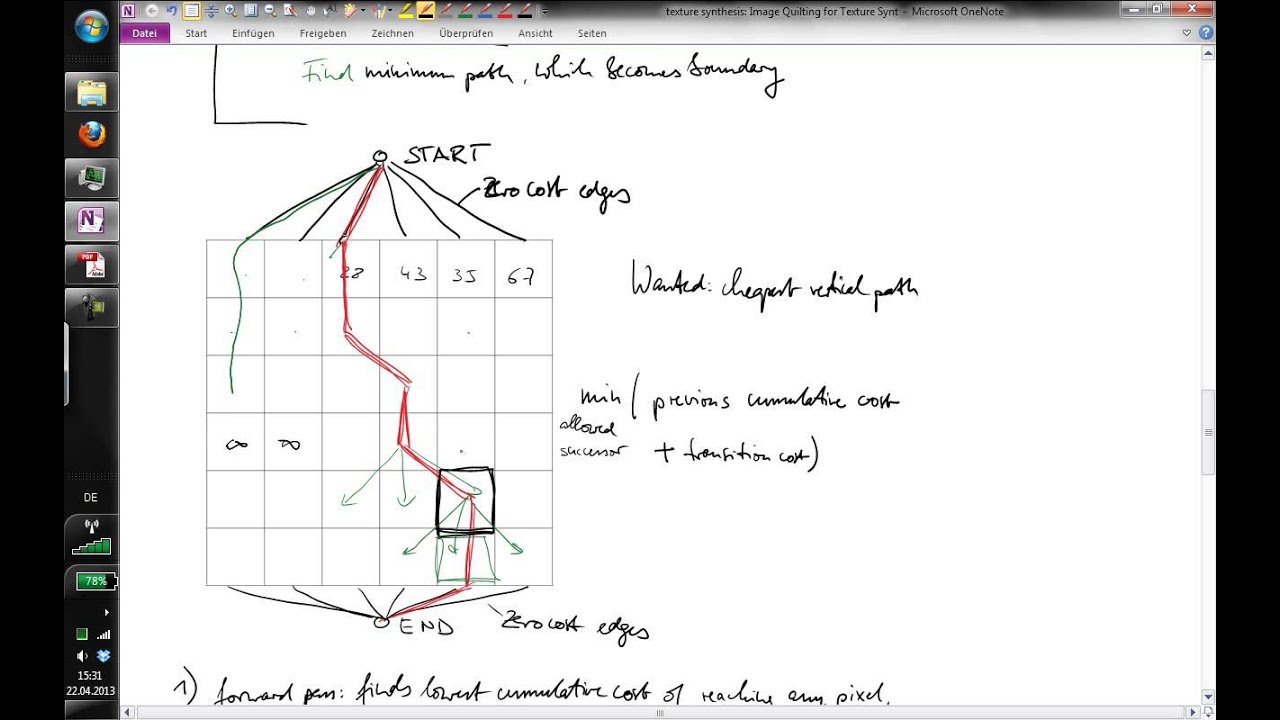 texture synthesis: Image Quilting for Texture Synt - Microsoft OneNote
Datei Start Einfügen Freigeben Zeichnen Überprüfen Ansicht Seiten
Find minimum path, which becomes boundary
START
Zero cost edges
28 43 35 67
Wanted: cheapest vertical path
min ( previous cumulative cost
allowed
successor + transition cost)
∞ ∞
END
Zero cost edges
1) forward pass: finds lowest cumulative cost of reaching any pixel,
PDF
DE
78%
15:31
22.04.2013